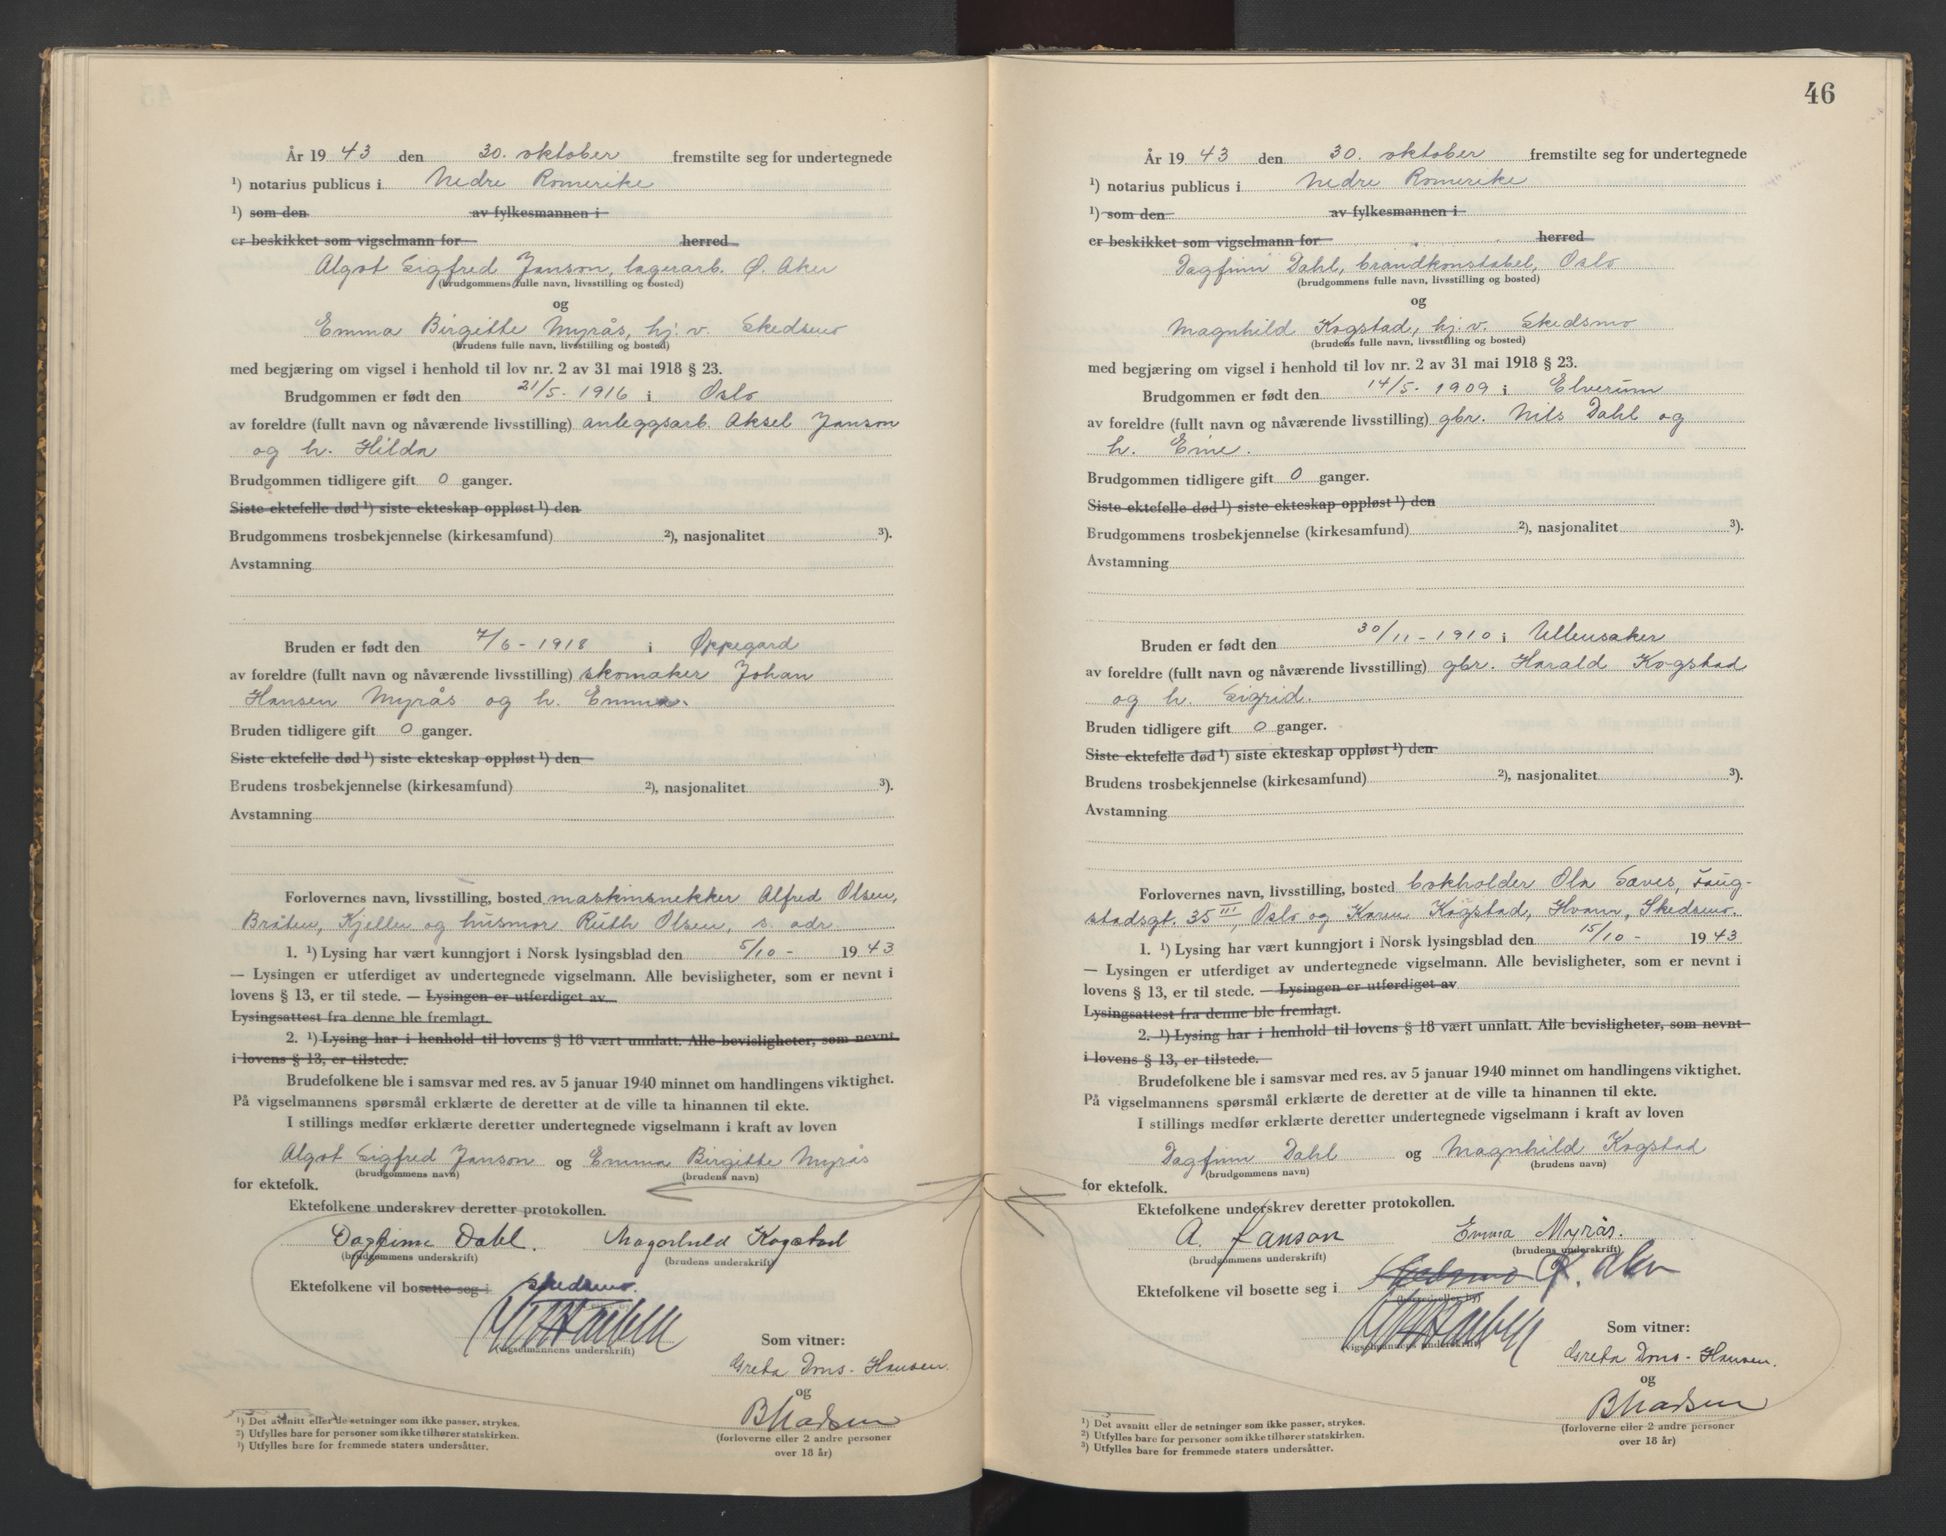 År 19 43 den 30. oktober fremstilte seg for undertegnede
¹) notarius publicus i Nedre Romerike
¹) som den av fylkesmannen i
er beskikket som vigselmann for herred
Algot Sigfred Janson, lagerarb. Ø. Aker
(brudgommens fulle navn, livsstilling og bosted)
og
Emma Birgitte Myrås, hj. v. Skedsmo
(brudens fulle navn, livsstilling og bosted)
med begjæring om vigsel i henhold til lov nr. 2 av 31 mai 1918 § 23.
Brudgommen er født den 21/5 - 1916 i Oslo
av foreldre (fullt navn og nåværende livsstilling) anleggsarb. Aksel Janson
og h. Hilda
Brudgommen tidligere gift 0 ganger.
Siste ektefelle død ¹) siste ekteskap oppløst ¹) den
Brudgommens trosbekjennelse (kirkesamfund) ²), nasjonalitet ³).
Avstamning
Bruden er født den 7/6 - 1918 i Oppegard
av foreldre (fullt navn og nåværende livsstilling) skomaker Johan
Hansen Myrås og h. Emma.
Bruden tidligere gift 0 ganger.
Siste ektefelle død ¹) siste ekteskap oppløst ¹) den
Brudens trosbekjennelse (kirkesamfund) ²), nasjonalitet ³).
Avstamning
Forlovernes navn, livsstilling, bosted maskinsnekker Alfred Olsen,
Bråten, Kjeller og husmor Ruth Olsen, s. adr
1. ¹) Lysing har vært kunngjort i Norsk lysingsblad den 5/10 - 19 43
— Lysingen er utferdiget av undertegnede vigselmann. Alle bevisligheter, som er nevnt i
lovens § 13, er til stede. — Lysingen er utferdiget av
Lysingsattest fra denne ble fremlagt.
2. ¹) Lysing har i henhold til lovens § 18 vært unnlatt. Alle bevisligheter, som nevnt
i lovens § 13, er tilstede.
Brudefolkene ble i samsvar med res. av 5 januar 1940 minnet om handlingens viktighet.
På vigselmannens spørsmål erklærte de deretter at de ville ta hinannen til ekte.
I stillings medfør erklærte deretter undertegnede vigselmann i kraft av loven
Algot Sigfred Janson og Emma Birgitte Myrås
(brudgommens navn) (brudens navn)
for ektefolk.
Ektefolkene underskrev deretter protokollen.
Dagfinn Dahl. Magnhild Kogstad
(brudgommens underskrift) (brudens underskrift)
Ektefolkene vil bosette seg i Skedsmo.
(vigselmannens underskrift)
Som vitner:
Greta Dons-Hansen.
og
B Madsen
(forloverne eller 2 andre personer
over 18 år)
¹) Det avsnitt eller de setninger som ikke passer, strykes.
²) Utfylles bare for personer som ikke tilhører statskirken.
³) Utfylles bare for fremmede staters undersåtter.
46
År 19 43 den 30. oktober fremstilte seg for undertegnede
¹) notarius publicus i Nedre Romerike
¹) som den av fylkesmannen i
er beskikket som vigselmann for herred
Dagfinn Dahl, brandkonstabel, Oslo
(brudgommens fulle navn, livsstilling og bosted)
og
Magnhild Kogstad, hj. v. Skedsmo
(brudens fulle navn, livsstilling og bosted)
med begjæring om vigsel i henhold til lov nr. 2 av 31 mai 1918 § 23.
Brudgommen er født den 14/5 - 1909 i Elverum
av foreldre (fullt navn og nåværende livsstilling) gbr. Nils Dahl og
h. Eine.
Brudgommen tidligere gift 0 ganger.
Siste ektefelle død ¹) siste ekteskap oppløst ¹) den
Brudgommens trosbekjennelse (kirkesamfund) ²), nasjonalitet ³).
Avstamning
Bruden er født den 30/11 - 1910 i Ullensaker
av foreldre (fullt navn og nåværende livsstilling) gbr. Harald Kogstad
og h. Sigrid.
Bruden tidligere gift 0 ganger.
Siste ektefelle død ¹) siste ekteskap oppløst ¹) den
Brudens trosbekjennelse (kirkesamfund) ²), nasjonalitet ³).
Avstamning
Forlovernes navn, livsstilling, bosted bokholder Ola Sæves,
stadsgt. 35 III, Oslo og Karen Kogstad, Hvam, Skedsmo.
1. ¹) Lysing har vært kunngjort i Norsk lysingsblad den 15/10 - 19 43
— Lysingen er utferdiget av undertegnede vigselmann. Alle bevisligheter, som er nevnt i
lovens § 13, er til stede. — Lysingen er utferdiget av
Lysingsattest fra denne ble fremlagt.
2. ¹) Lysing har i henhold til lovens § 18 vært unnlatt. Alle bevisligheter, som nevnt
i lovens § 13, er tilstede.
Brudefolkene ble i samsvar med res. av 5 januar 1940 minnet om handlingens viktighet.
På vigselmannens spørsmål erklærte de deretter at de ville ta hinannen til ekte.
I stillings medfør erklærte deretter undertegnede vigselmann i kraft av loven
Dagfinn Dahl og Magnhild Kogstad
(brudgommens navn) (brudens navn)
for ektefolk.
Ektefolkene underskrev deretter protokollen.
A. Janson Emma Myrås.
(brudgommens underskrift) (brudens underskrift)
Ektefolkene vil bosette seg i Skedsmo Ø. Aker
(vigselmannens underskrift)
Som vitner:
Greta Dons-Hansen.
og
B Madsen
(forloverne eller 2 andre personer
over 18 år)
¹) Det avsnitt eller de setninger som ikke passer, strykes.
²) Utfylles bare for personer som ikke tilhører statskirken.
³) Utfylles bare for fremmede staters undersåtter.